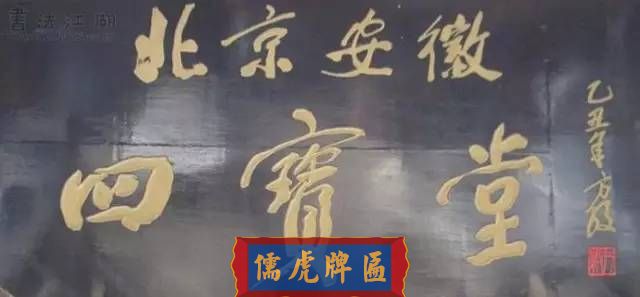 書法江湖
北京安徽
四寶堂
乙丑年方毅
儒虎牌匾